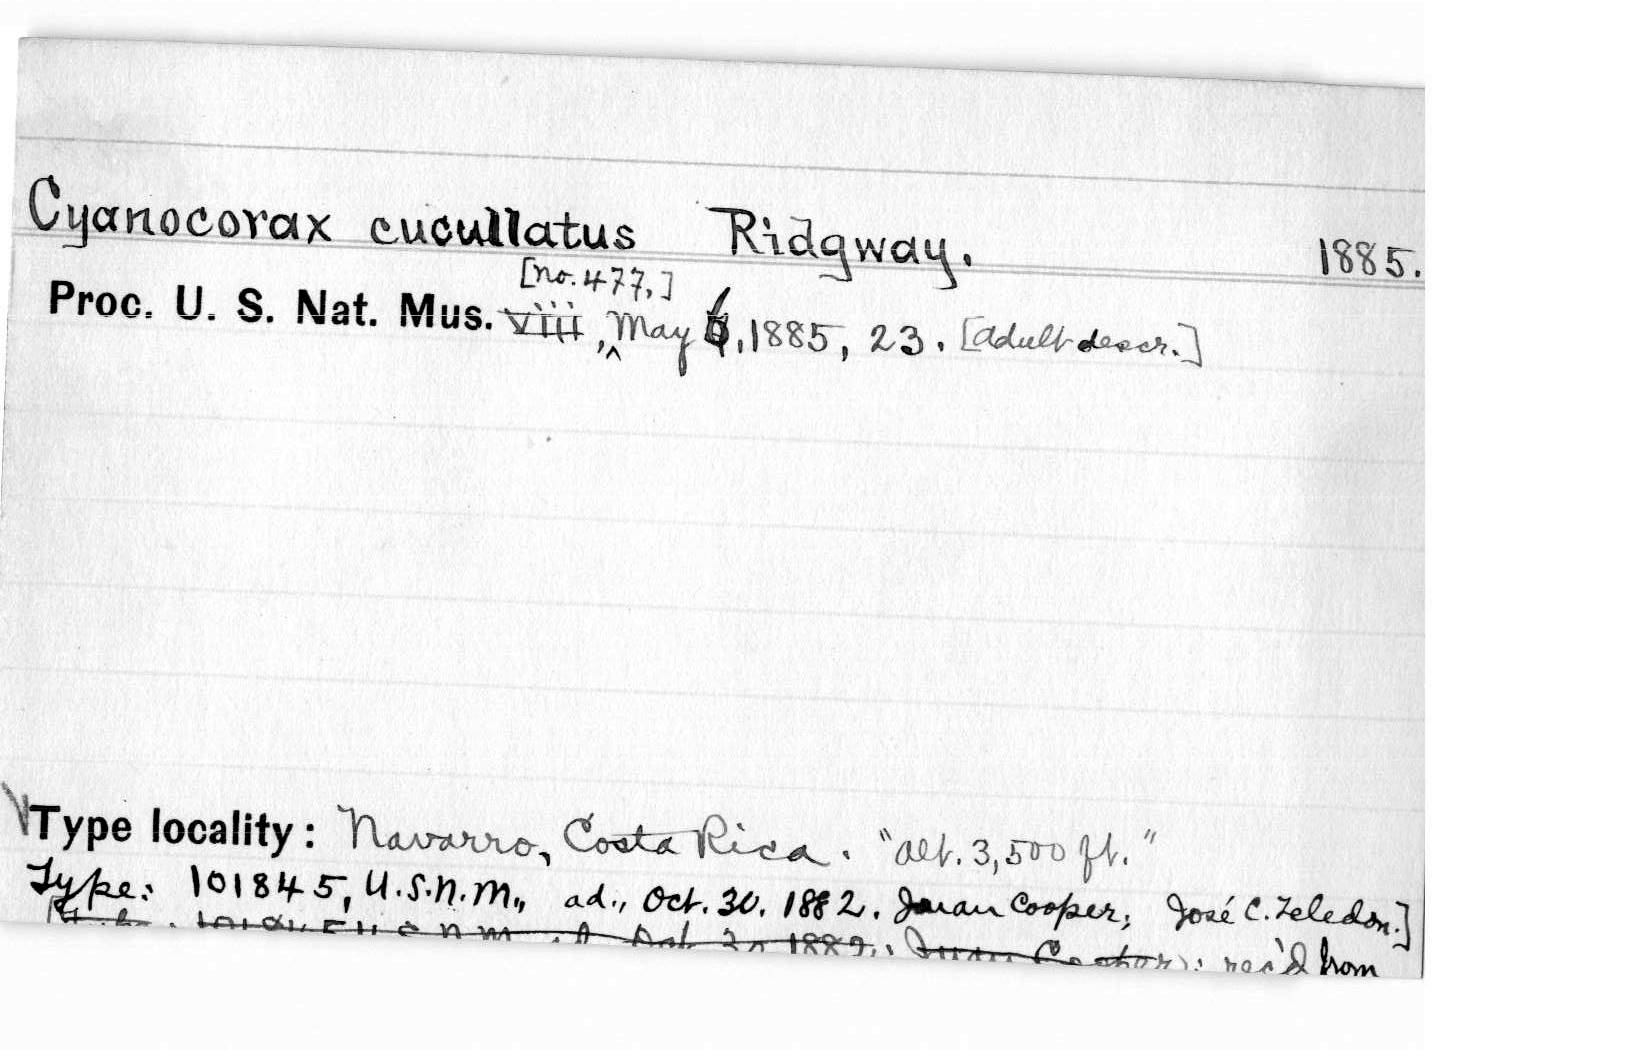 Cyanocorax cucullatus Ridgway. 1885.
[no. 477,]
Proc. U. S. Nat. Mus. viii, May 6, 1885, 23. [adult descr.]
Type locality: Navarro, Costa Rica. "alt. 3,500 ft."
Type: 101845, U.S.N.M., ad., Oct. 30. 1882. Juan Cooper; José C. Zeledon.]
101845 U S N M Oct 30 1882; Juan Cooper): rec'd from